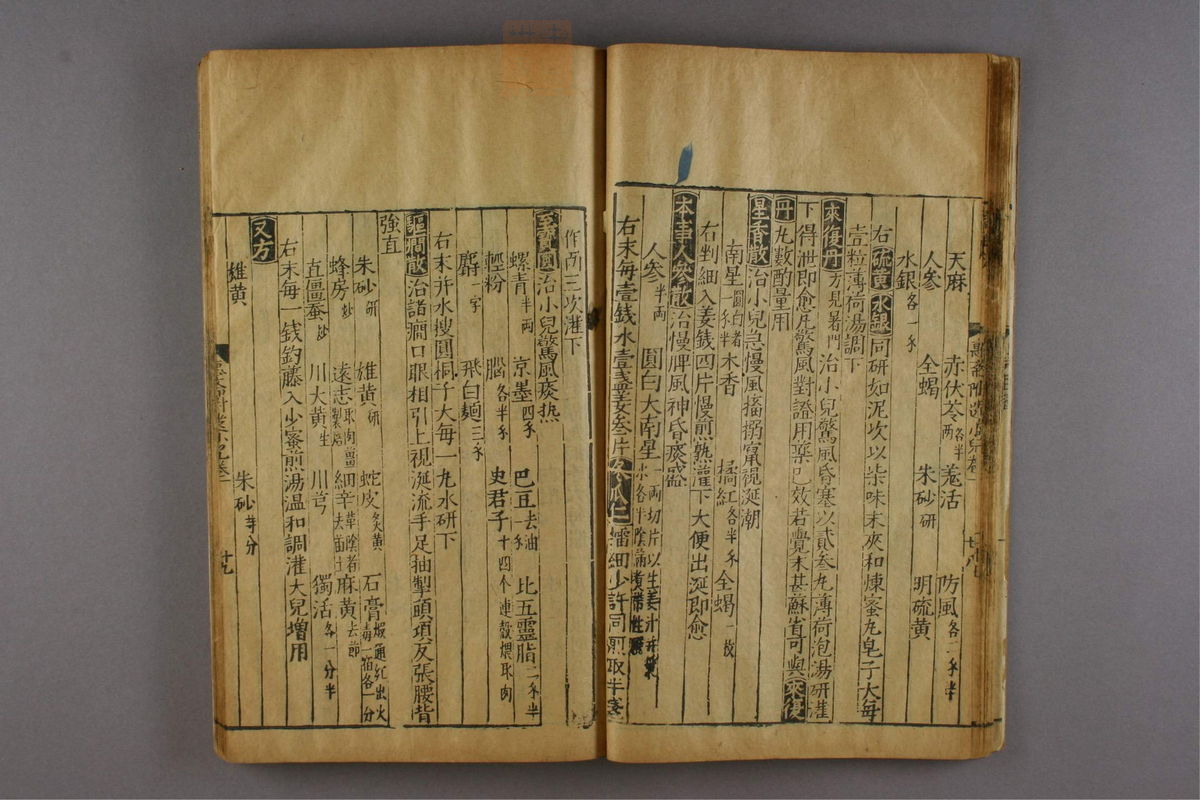 天麻 赤伏苓各半兩 羗活 防風各二禾半
人參 全蝎 朱砂研 明硫黄
水銀各一禾
右硫黄水銀同研如泥次以柒味末夾和煉蜜丸皂子大每
壹粒薄荷湯調下
來復丹方見暑門 治小兒驚風昏塞以貳叁丸薄荷泡湯研灌
下得泄即愈凡驚風對證用藥已效若覺未甚蘇省可與來復
丹丸數酌量用
星香散治小兒急慢風搐搦竄視涎潮
南星圓白者一禾半 木香 橘紅各半禾 全蝎一枚
右剉細入姜錢四片慢煎熟灌下大便出涎即愈
本事人參散治慢脾風神昏痰盛
人參半兩 圓白大南星一兩切片以生姜汁并漿水各半陰滿煑帶性曬
右末每壹錢水壹盞姜叁片冬瓜仁擂細少許同煎取半盞
作兩三次灌下
至寶圓治小兒驚風痰热
螺青半兩 京墨四禾 巴豆去油一禾 比五靈脂一禾半
輕粉 腦各半禾 史君子十四个連殼煨取肉
麝一字 飛白麺三禾
右末井水搜圓桐子大每一丸水研下
驅癇散治諸癇口眼相引上視涎流手足抽掣頭項反張腰背
強直
朱砂研 雄黄研 蛇皮炙黄 石膏煅通紅出火毒一宿各一分
蜂房炒 遠志取肉薑製焙 細辛華陰者去苗土 麻黄去節
直僵蚕炒 川大黄生 川芎 獨活各一分半
右末每一錢釣藤入少蜜煎湯温和調灌大兒增用
又方
雄黄 朱砂等分
廿九